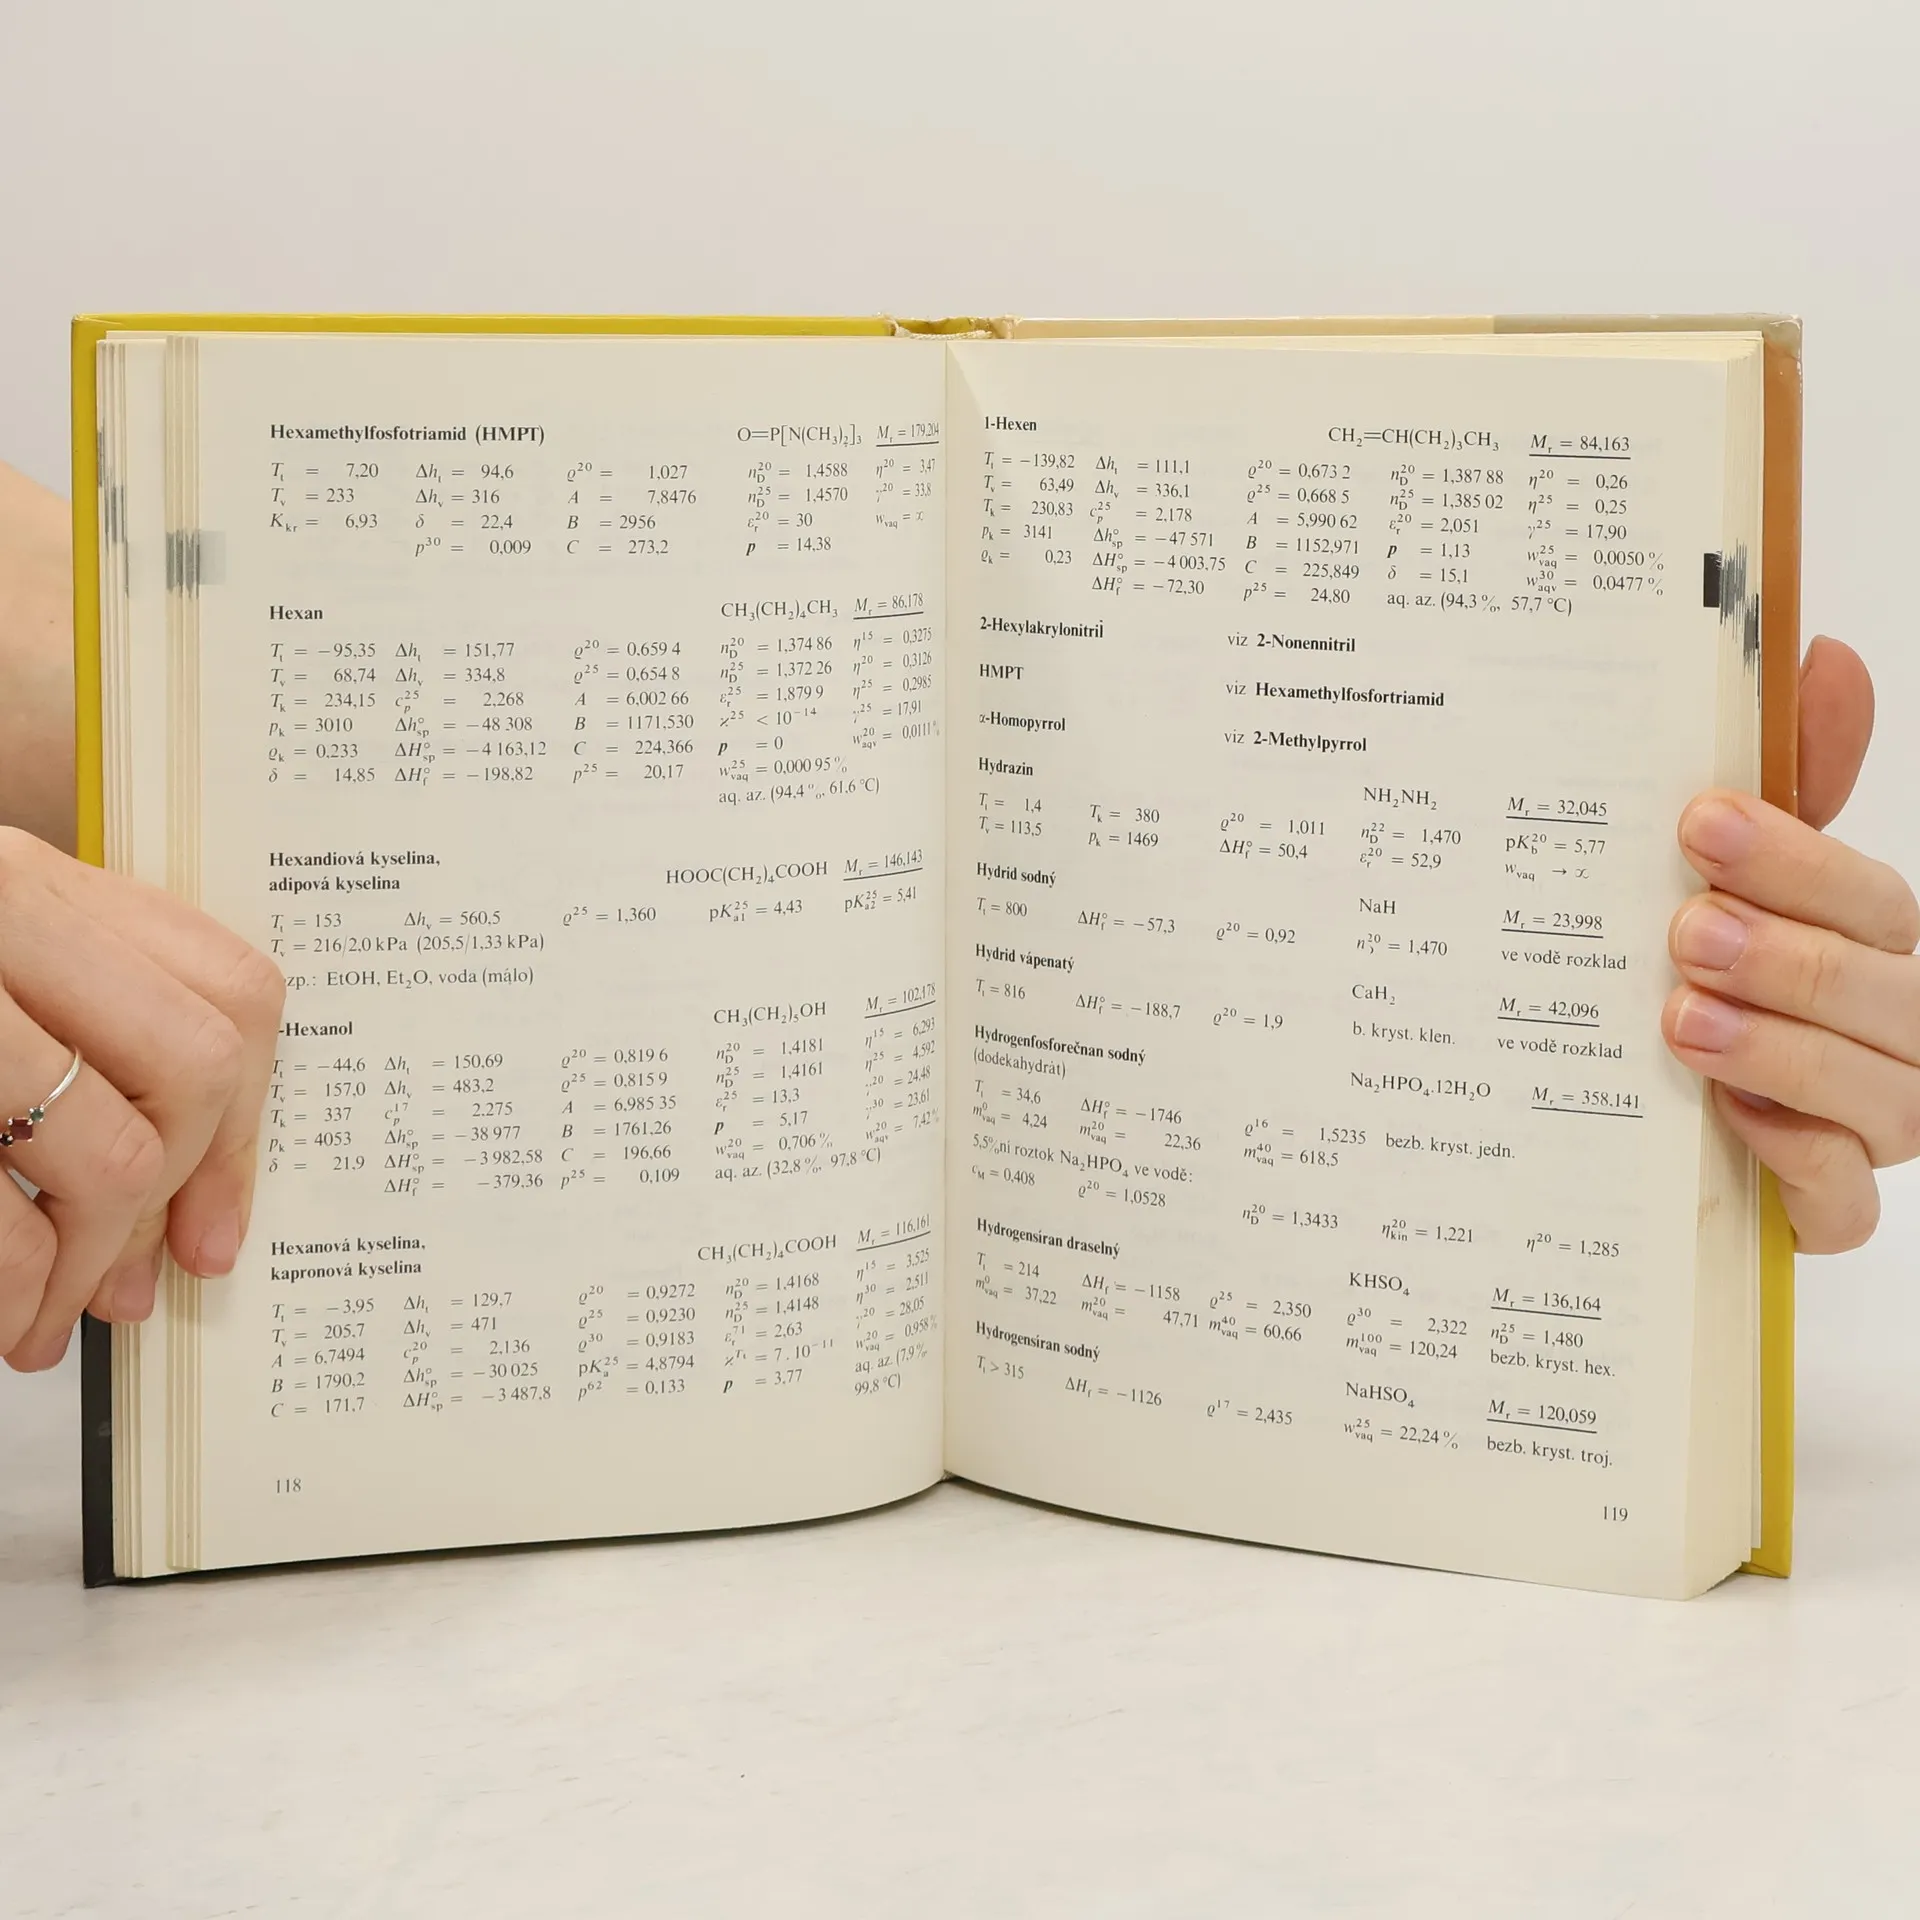 Hexamethylfosfotriamid (HMPT) O=P[N(CH₃)₂]₃ Mᵣ = 179,204
Tₜ = 7,20 Δhₜ = 94,6 ϱ²⁰ = 1,027 n_D²⁰ = 1,4588 η²⁰ = 3,47
Tᵥ = 233 Δhᵥ = 316 A = 7,8476 n_D²⁵ = 1,4570 γ²⁰ = 33,8
K_kr = 6,93 δ = 22,4 B = 2956 εᵣ²⁰ = 30 w_vaq = ∞
p³⁰ = 0,009 C = 273,2 p = 14,38
Hexan CH₃(CH₂)₄CH₃ Mᵣ = 86,178
Tₜ = −95,35 Δhₜ = 151,77 ϱ²⁰ = 0,659 4 n_D²⁰ = 1,374 86 η¹⁵ = 0,3275
Tᵥ = 68,74 Δhᵥ = 334,8 ϱ²⁵ = 0,654 8 n_D²⁵ = 1,372 26 η²⁰ = 0,3126
T_k = 234,15 c_p²⁵ = 2,268 A = 6,002 66 εᵣ²⁵ = 1,879 9 η²⁵ = 0,2985
p_k = 3010 Δh°_sp = −48 308 B = 1171,530 ϰ²⁵ < 10⁻¹⁴ γ²⁵ = 17,91
ϱ_k = 0,233 ΔH°_sp = −4 163,12 C = 224,366 p = 0 w_aqv²⁰ = 0,0111 %
δ = 14,85 ΔH°_f = −198,82 p²⁵ = 20,17 w_vaq²⁵ = 0,000 95 %
aq. az. (94,4 %, 61,6 °C)
Hexandiová kyselina,
adipová kyselina HOOC(CH₂)₄COOH Mᵣ = 146,143
Tₜ = 153 Δhᵥ = 560,5 ϱ²⁵ = 1,360 pK_a1²⁵ = 4,43 pK_a2²⁵ = 5,41
Tᵥ = 216/2,0 kPa (205,5/1,33 kPa)
zp.: EtOH, Et₂O, voda (málo)
-Hexanol CH₃(CH₂)₅OH Mᵣ = 102,178
Tₜ = −44,6 Δhₜ = 150,69 ϱ²⁰ = 0,819 6 n_D²⁰ = 1,4181 η¹⁵ = 6,293
Tᵥ = 157,0 Δhᵥ = 483,2 ϱ²⁵ = 0,815 9 n_D²⁵ = 1,4161 η²⁵ = 4,592
T_k = 337 c_p¹⁷ = 2,275 A = 6,985 35 εᵣ²⁵ = 13,3 γ²⁰ = 24,48
p_k = 4053 Δh°_sp = −38 977 B = 1761,26 p = 5,17 γ³⁰ = 23,61
δ = 21,9 ΔH°_sp = −3 982,58 C = 196,66 w_vaq²⁰ = 0,706 % w_aqv²⁰ = 7,42 %
ΔH°_f = −379,36 p²⁵ = 0,109 aq. az. (32,8 %, 97,8 °C)
Hexanová kyselina,
kapronová kyselina CH₃(CH₂)₄COOH Mᵣ = 116,161
Tₜ = −3,95 Δhₜ = 129,7 ϱ²⁰ = 0,9272 n_D²⁰ = 1,4168 η¹⁵ = 3,525
Tᵥ = 205,7 Δhᵥ = 471 ϱ²⁵ = 0,9230 n_D²⁵ = 1,4148 η³⁰ = 2,511
A = 6,7494 c_p²⁰ = 2,136 ϱ³⁰ = 0,9183 εᵣ⁷¹ = 2,63 γ²⁰ = 28,05
B = 1790,2 Δh°_sp = −30 025 pK_a²⁵ = 4,8794 ϰ^Tₜ = 7 . 10⁻¹¹ w_vaq²⁰ = 0,958 %
C = 171,7 ΔH°_sp = −3 487,8 p⁶² = 0,133 p = 3,77 aq. az. (7,9 %,
99,8 °C)
118
1-Hexen CH₂=CH(CH₂)₃CH₃ Mᵣ = 84,163
Tₜ = −139,82 Δhₜ = 111,1 ϱ²⁰ = 0,673 2 n_D²⁰ = 1,387 88 η²⁰ = 0,26
Tᵥ = 63,49 Δhᵥ = 336,1 ϱ²⁵ = 0,668 5 n_D²⁵ = 1,385 02 η²⁵ = 0,25
T_k = 230,83 c_p²⁵ = 2,178 A = 5,990 62 εᵣ²⁰ = 2,051 γ²⁵ = 17,90
p_k = 3141 Δh°_sp = −47 571 B = 1152,971 p = 1,13 w_vaq²⁵ = 0,0050 %
ϱ_k = 0,23 ΔH°_sp = −4 003,75 C = 225,849 δ = 15,1 w_aqv³⁰ = 0,0477 %
ΔH°_f = −72,30 p²⁵ = 24,80 aq. az. (94,3 %, 57,7 °C)
2-Hexylakrylonitril viz 2-Nonennitril
HMPT viz Hexamethylfosfortriamid
α-Homopyrrol viz 2-Methylpyrrol
Hydrazin NH₂NH₂ Mᵣ = 32,045
Tₜ = 1,4 T_k = 380 ϱ²⁰ = 1,011 n_D²² = 1,470 pK_b²⁰ = 5,77
Tᵥ = 113,5 p_k = 1469 ΔH°_f = 50,4 εᵣ²⁰ = 52,9 w_vaq → ∞
Hydrid sodný NaH Mᵣ = 23,998
Tₜ = 800 ΔH°_f = −57,3 ϱ²⁰ = 0,92 n_D²⁰ = 1,470 ve vodě rozklad
Hydrid vápenatý CaH₂ Mᵣ = 42,096
Tₜ = 816 ΔH°_f = −188,7 ϱ²⁰ = 1,9 b. kryst. klen. ve vodě rozklad
Hydrogenfosforečnan sodný
(dodekahydrát) Na₂HPO₄.12H₂O Mᵣ = 358,141
Tₜ = 34,6 ΔH°_f = −1746 ϱ¹⁶ = 1,5235 bezb. kryst. jedn.
m_vaq⁰ = 4,24 m_vaq²⁰ = 22,36 m_vaq⁴⁰ = 618,5
5,5%ní roztok Na₂HPO₄ ve vodě:
c_M = 0,408 ϱ²⁰ = 1,0528 n_D²⁰ = 1,3433 η_kin²⁰ = 1,221 η²⁰ = 1,285
Hydrogensíran draselný KHSO₄ Mᵣ = 136,164
Tₜ = 214 ΔH_f = −1158 ϱ²⁵ = 2,350 ϱ³⁰ = 2,322 n_D²⁵ = 1,480
m_vaq⁰ = 37,22 m_vaq²⁰ = 47,71 m_vaq⁴⁰ = 60,66 m_vaq¹⁰⁰ = 120,24 bezb. kryst. hex.
Hydrogensíran sodný NaHSO₄ Mᵣ = 120,059
Tₜ > 315 ΔH_f = −1126 ϱ¹⁷ = 2,435 w_vaq²⁵ = 22,24 % bezb. kryst. troj.
119